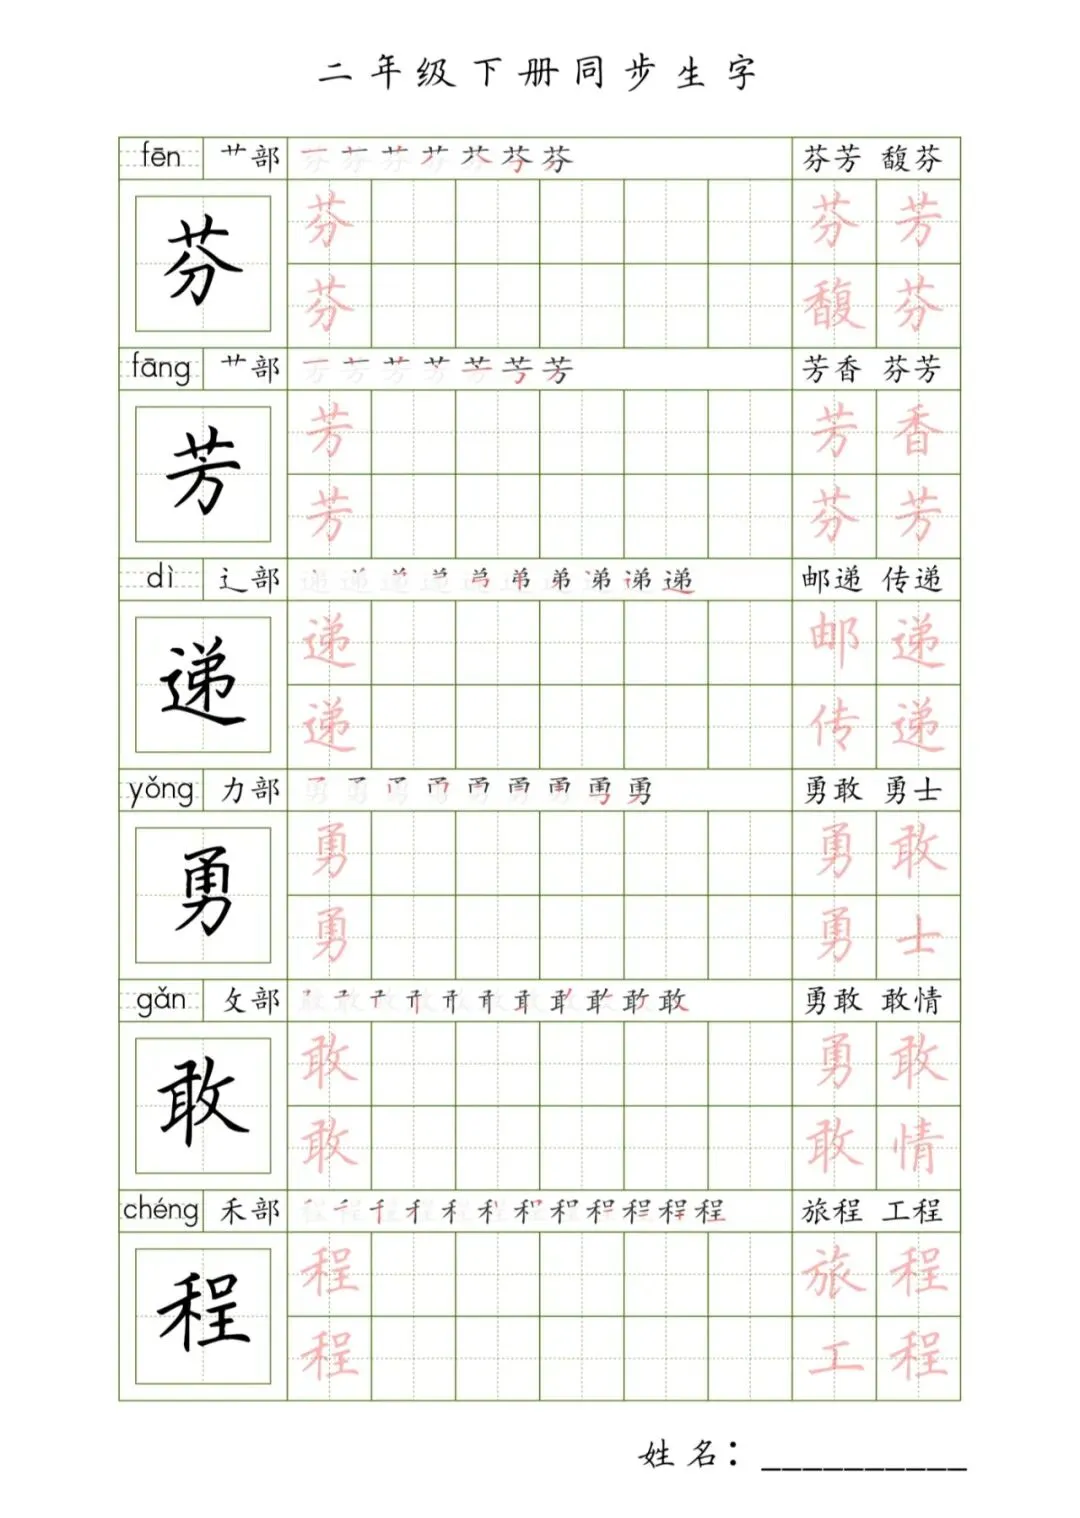 二年级下册同步生字
fēn 艹部 芬 芬芳 馥芬
芬 芬 芬芳
芬 馥芬
fāng 艹部 芳 芳香 芬芳
芳 芳 芳香
芳 芬芳
dì 辶部 递 邮递 传递
递 递 邮递
递 传递
yǒng 力部 勇 勇敢 勇士
勇 勇 勇敢
勇 勇士
gǎn 攵部 敢 勇敢 敢情
敢 敢 勇敢
敢 敢情
chéng 禾部 程 旅程 工程
程 程 旅程
程 工程
姓名：__________